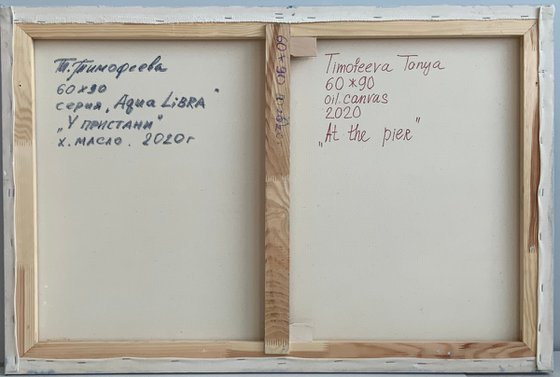 Т. Тимофеева
60 х 90
серия „Aqua LiBRA"
„У ПРИСТАНИ"
х. масло. 2020 г
Timofeeva Tanya
60 * 90
oil. canvas
2020
„At the pier"
60 * 90